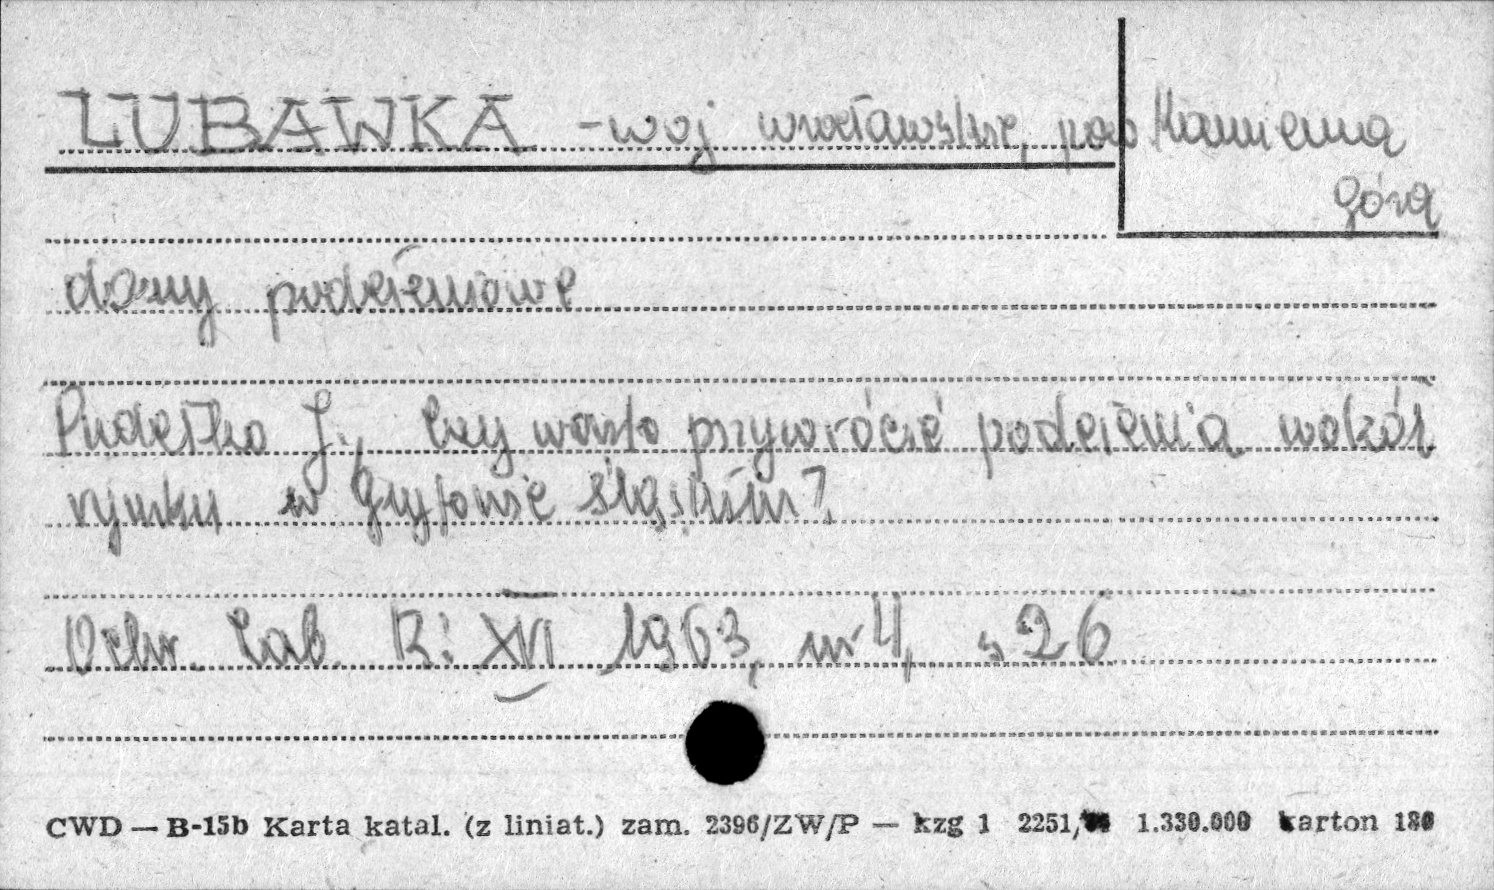 LUBAWKA - woj wrocławskie, pow Kamienna
Góra
domy podcieniowe
Pudełko J., Czy warto przywrócić podcienia wokół
rynku w Gryfowie Śląskim?
Ochr. Zab. R: XVI 1963, nr 4, s 26
CWD — B-15b Karta katal. (z liniat.) zam. 2396/ZW/P — kzg 1 2251, 1.330.000 karton 180